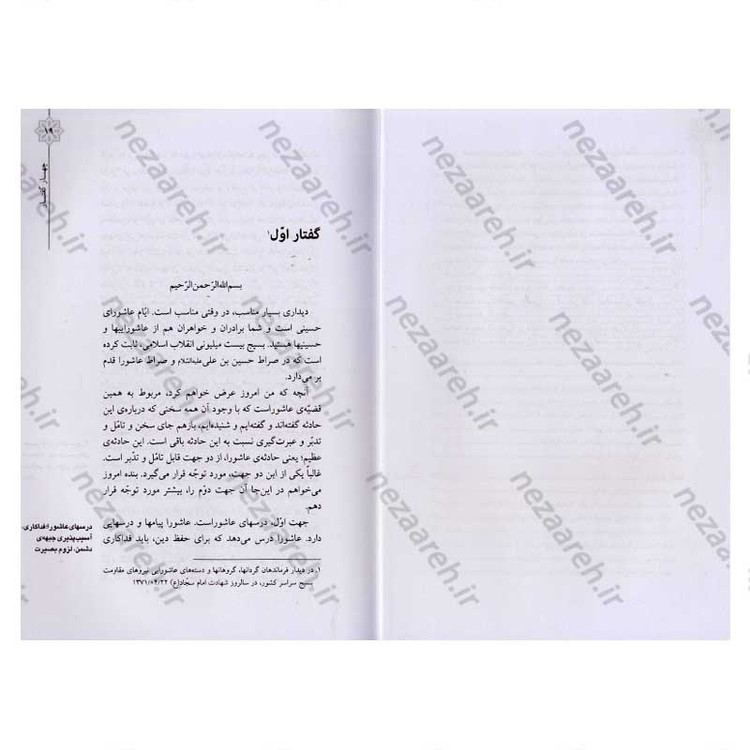 ۱۹
چهار گفتار
گفتار اوّل۱
بسم‌الله‌الرّحمن‌الرّحیم
دیداری بسیار مناسب، در وقتی مناسب است. ایّام عاشورای
حسینی است و شما برادران و خواهران هم از عاشوراییها و
حسینیها هستید. بسیج بیست میلیونی انقلاب اسلامی، ثابت کرده
است که در صراط حسین بن علی علیه‌السّلام و صراط عاشورا قدم
بر می‌دارد.
آنچه که من امروز عرض خواهم کرد، مربوط به همین
قضیّه‌ی عاشوراست که با وجود آن همه سخنی که درباره‌ی این
حادثه گفته‌اند و گفته‌ایم و شنیده‌ایم، بازهم جای سخن و تامّل و
تدبّر و عبرت‌گیری نسبت به این حادثه باقی است. این حادثه‌ی
عظیم؛ یعنی حادثه‌ی عاشورا، از دو جهت قابل تامّل و تدبّر است.
غالباً یکی از این دو جهت، مورد توجّه قرار می‌گیرد. بنده امروز
می‌خواهم در این‌جا آن جهت دوّم را، بیشتر مورد توجّه قرار
دهم.
جهت اوّل، درسهای عاشوراست. عاشورا پیامها و درسهایی
دارد. عاشورا درس می‌دهد که برای حفظ دین، باید فداکاری
درسهای عاشورا: فداکاری،
آسیب‌پذیری جبهه‌ی
دشمن، لزوم بصیرت
۱. در دیدار فرماندهان گردانها، گروهانها و دسته‌های عاشورایی نیروهای مقاومت
بسیج سراسر کشور، در سالروز شهادت امام سجّاد(ع) ۱۳۷۱/۰۴/۲۲
nezaareh.ir
nezaareh.ir
nezaareh.ir
nezaareh.ir
nezaareh.ir
nezaareh.ir
nezaareh.ir
nezaareh.ir
nezaareh.ir